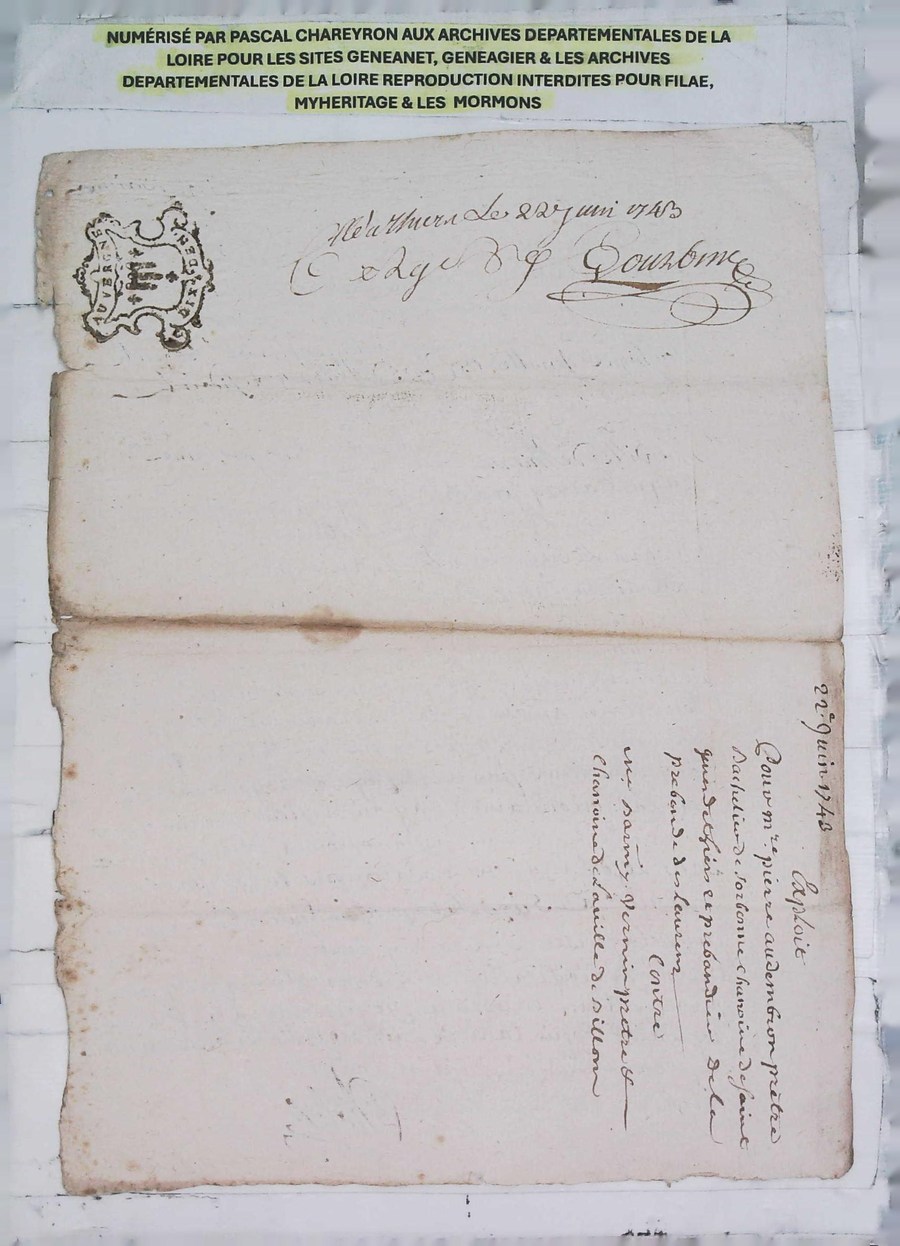 NUMÉRISÉ PAR PASCAL CHAREYRON AUX ARCHIVES DEPARTEMENTALES DE LA
LOIRE POUR LES SITES GENEANET, GENEAGIER & LES ARCHIVES
DEPARTEMENTALES DE LA LOIRE REPRODUCTION INTERDITES POUR FILAE,
MYHERITAGE & LES MORMONS
AUVERGNE
SIX DEN
Thiern Le 22 juin 1743
22e Juin 1743
Exploit
Pour mre pierre audembron prêtre
Bachelier de sorbonne chanoine de saint
genest et prebandier de la
prebande des laurenz
Contre
prêtre &
chanoine de la ville de Billom